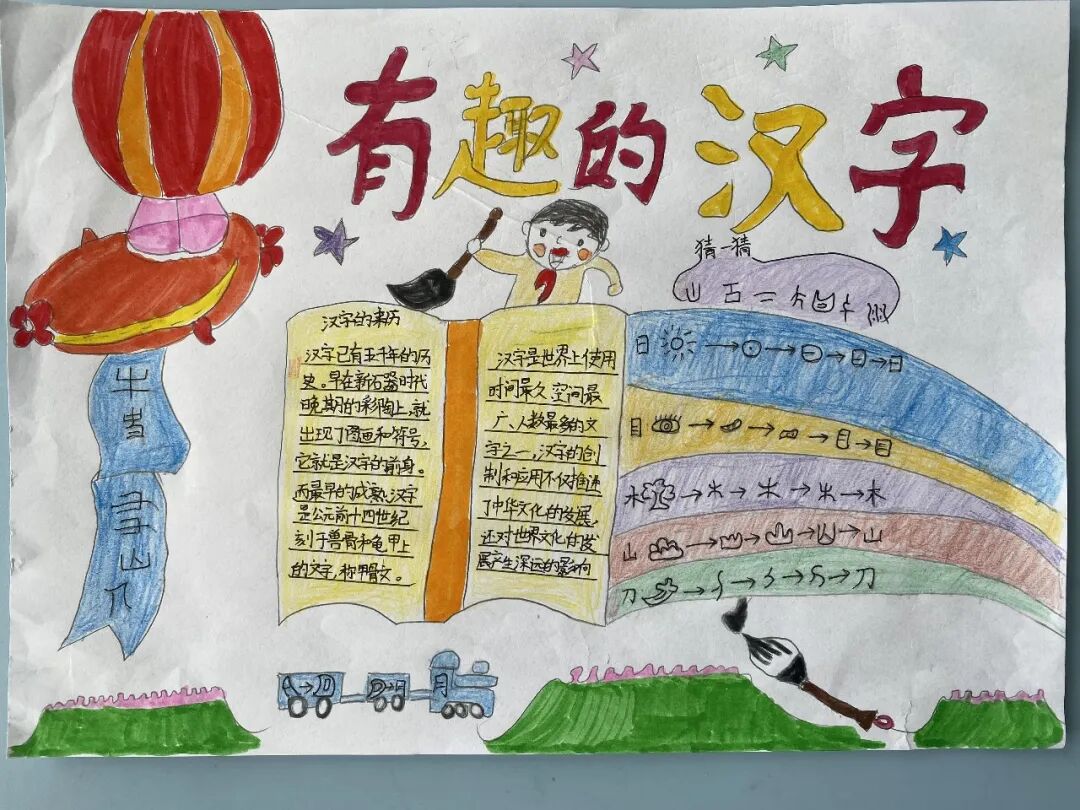 有趣的汉字
猜一猜
山 石 =
汉字的来历
汉字已有五千年的历
史。早在新石器时代
晚期的彩陶上,就
出现了图画和符号,
它就是汉字的前身。
而最早的成熟汉字
是公元前十四世纪
刻于兽骨和龟甲上
的文字,称甲骨文。
汉字是世界上使用
时间最久 空间最
广、人数最多的文
字之一,汉字的创
制和应用不仅推进
了中华文化的发展,
还对世界文化的发
展产生深远的影响
日 → → → 日 → 日
目 → → → 目 → 目
木 → 木 → 木 → 木 → 木
山 → → → → 山
刀 → → → → 刀
→
→ 月
月